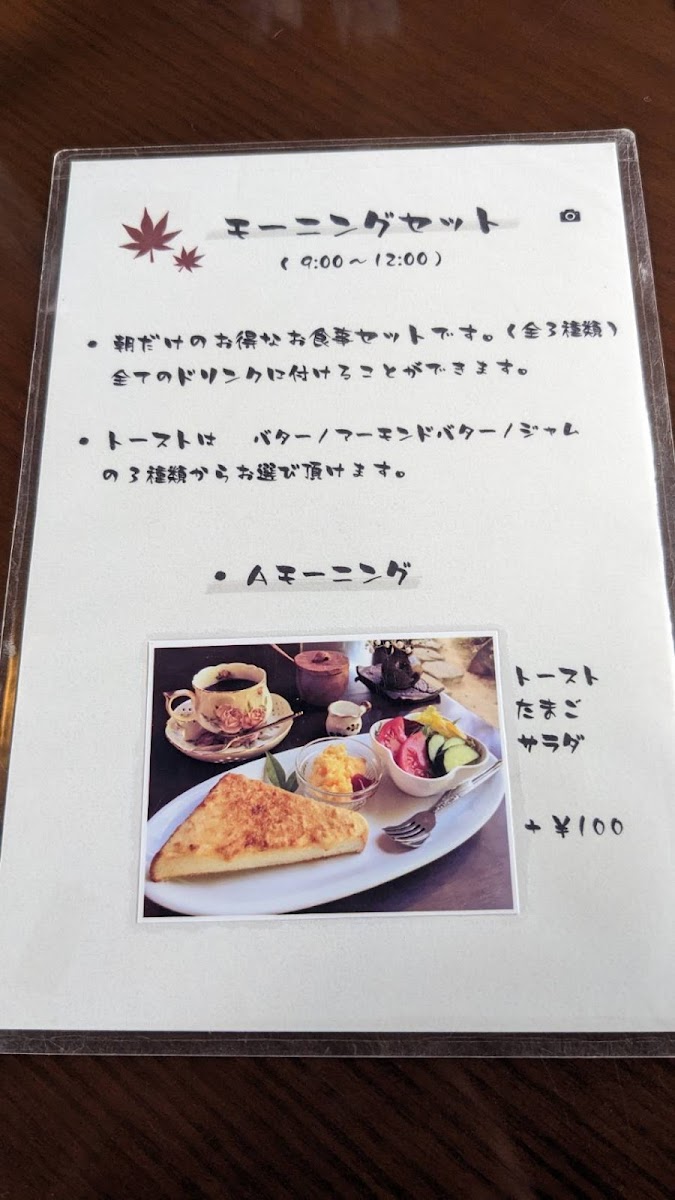 モーニングセット
(9:00～12:00)
・朝だけのお得なお食事セットです。(全3種類)
全てのドリンクに付けることができます。
・トーストは　バター/アーモンドバター/ジャム
の3種類からお選び頂けます。
・Aモーニング
トースト
たまご
サラダ
+¥100